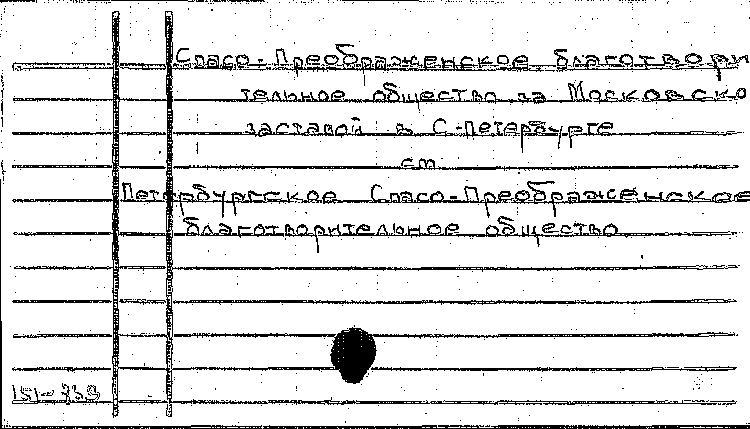 Спасо-Преображенское благотвори
тельное общество за Московско
заставой в С-Петербурге
см
Петербургское Спасо-Преображенское
благотворительное общество